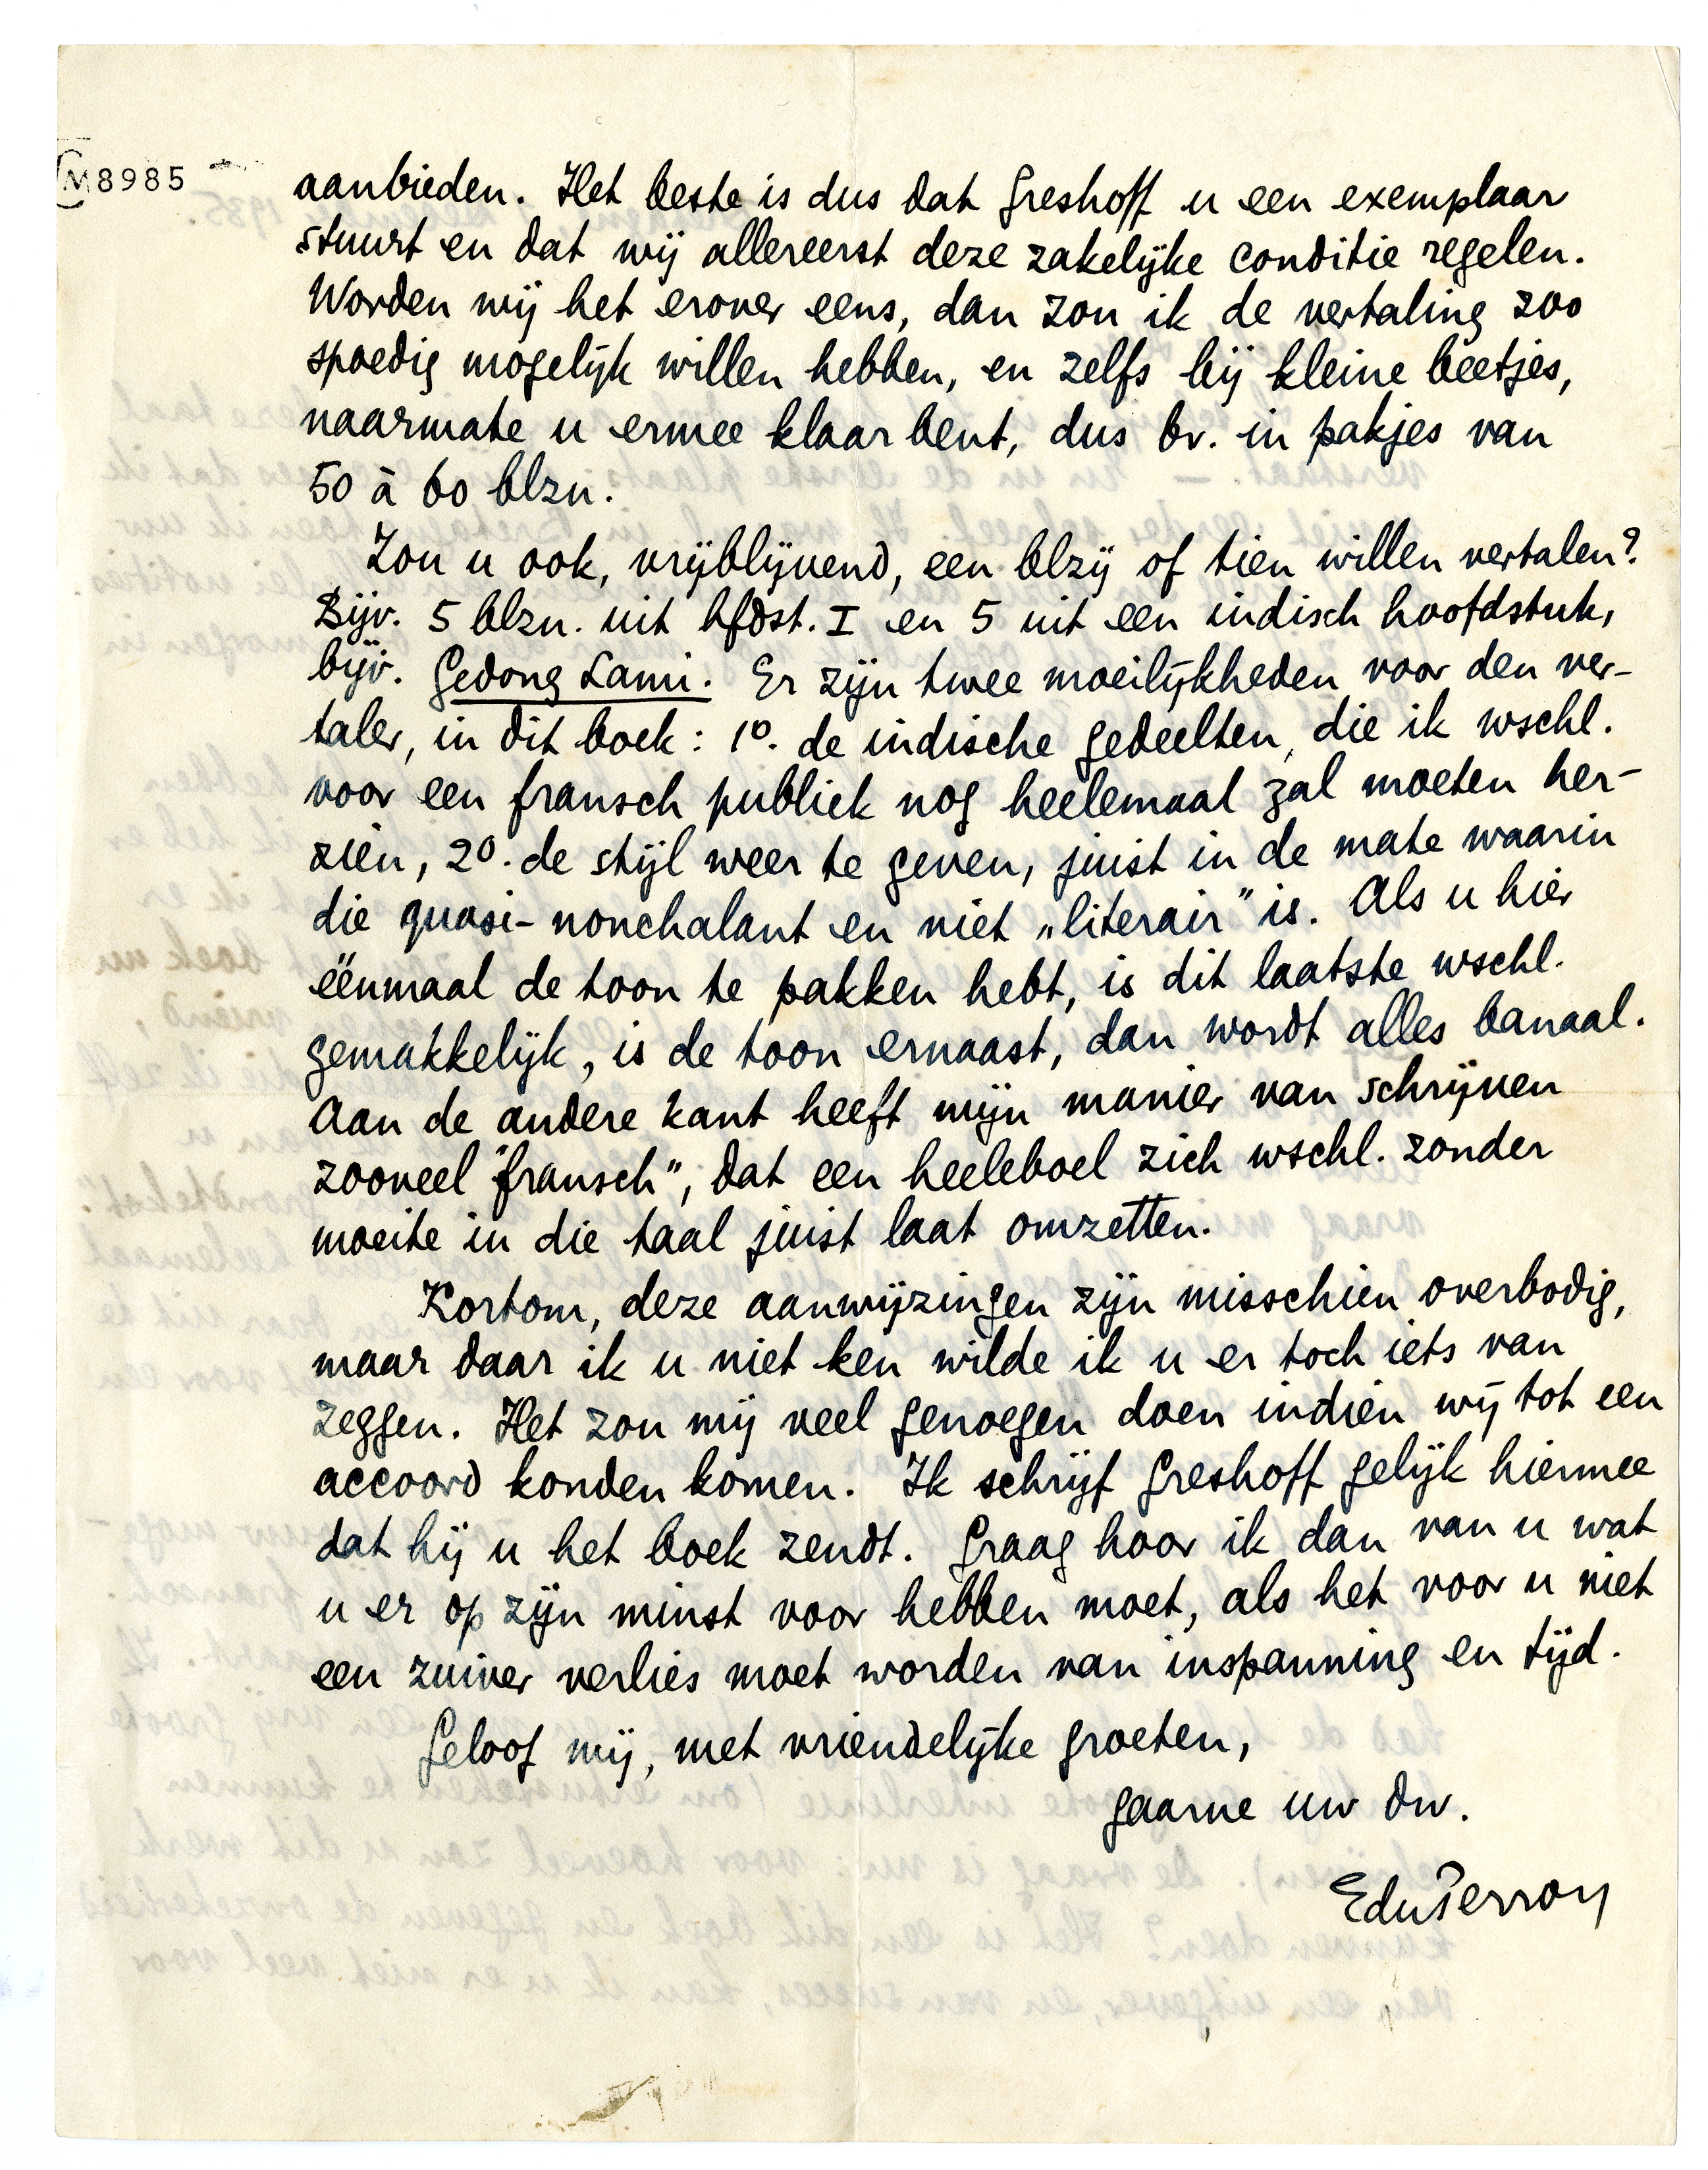 M8985
aanbieden. Het beste is dus dat Greshoff u een exemplaar
stuurt en dat wij allereerst deze zakelijke conditie regelen.
Worden wij het erover eens, dan zou ik de vertaling zoo
spoedig mogelijk willen hebben, en zelfs bij kleine beetjes,
naarmate u ermee klaar bent, dus bv. in pakjes van
50 à 60 blzn.
Zou u ook, vrijblijvend, een blzij of tien willen vertalen?
Bijv. 5 blzn. uit hfdst. I en 5 uit een indisch hoofdstuk,
bijv. Gedong Lami. Er zijn twee moeilijkheden voor den ver-
taler, in dit boek: 1º. de indische gedeelten, die ik wschl.
voor een fransch publiek nog heelemaal zal moeten her-
zien, 2º. de stijl weer te geven, juist in de mate waarin
die quasi-nonchalant en niet „literair" is. Als u hier
éénmaal de toon te pakken hebt, is dit laatste wschl.
gemakkelijk, is de toon ernaast, dan wordt alles banaal.
Aan de andere kant heeft mijn manier van schrijven
zooveel "fransch", dat een heeleboel zich wschl. zonder
moeite in die taal juist laat omzetten.
Kortom, deze aanwijzingen zijn misschien overbodig,
maar daar ik u niet ken wilde ik u er toch iets van
zeggen. Het zou mij veel genoegen doen indien wij tot een
accoord konden komen. Ik schrijf Greshoff gelijk hiermee
dat hij u het boek zendt. Graag hoor ik dan van u wat
u er op zijn minst voor hebben moet, als het voor u niet
een zuiver verlies moet worden van inspanning en tijd.
Geloof mij, met vriendelijke groeten,
gaarne uw dw.
EduPerron